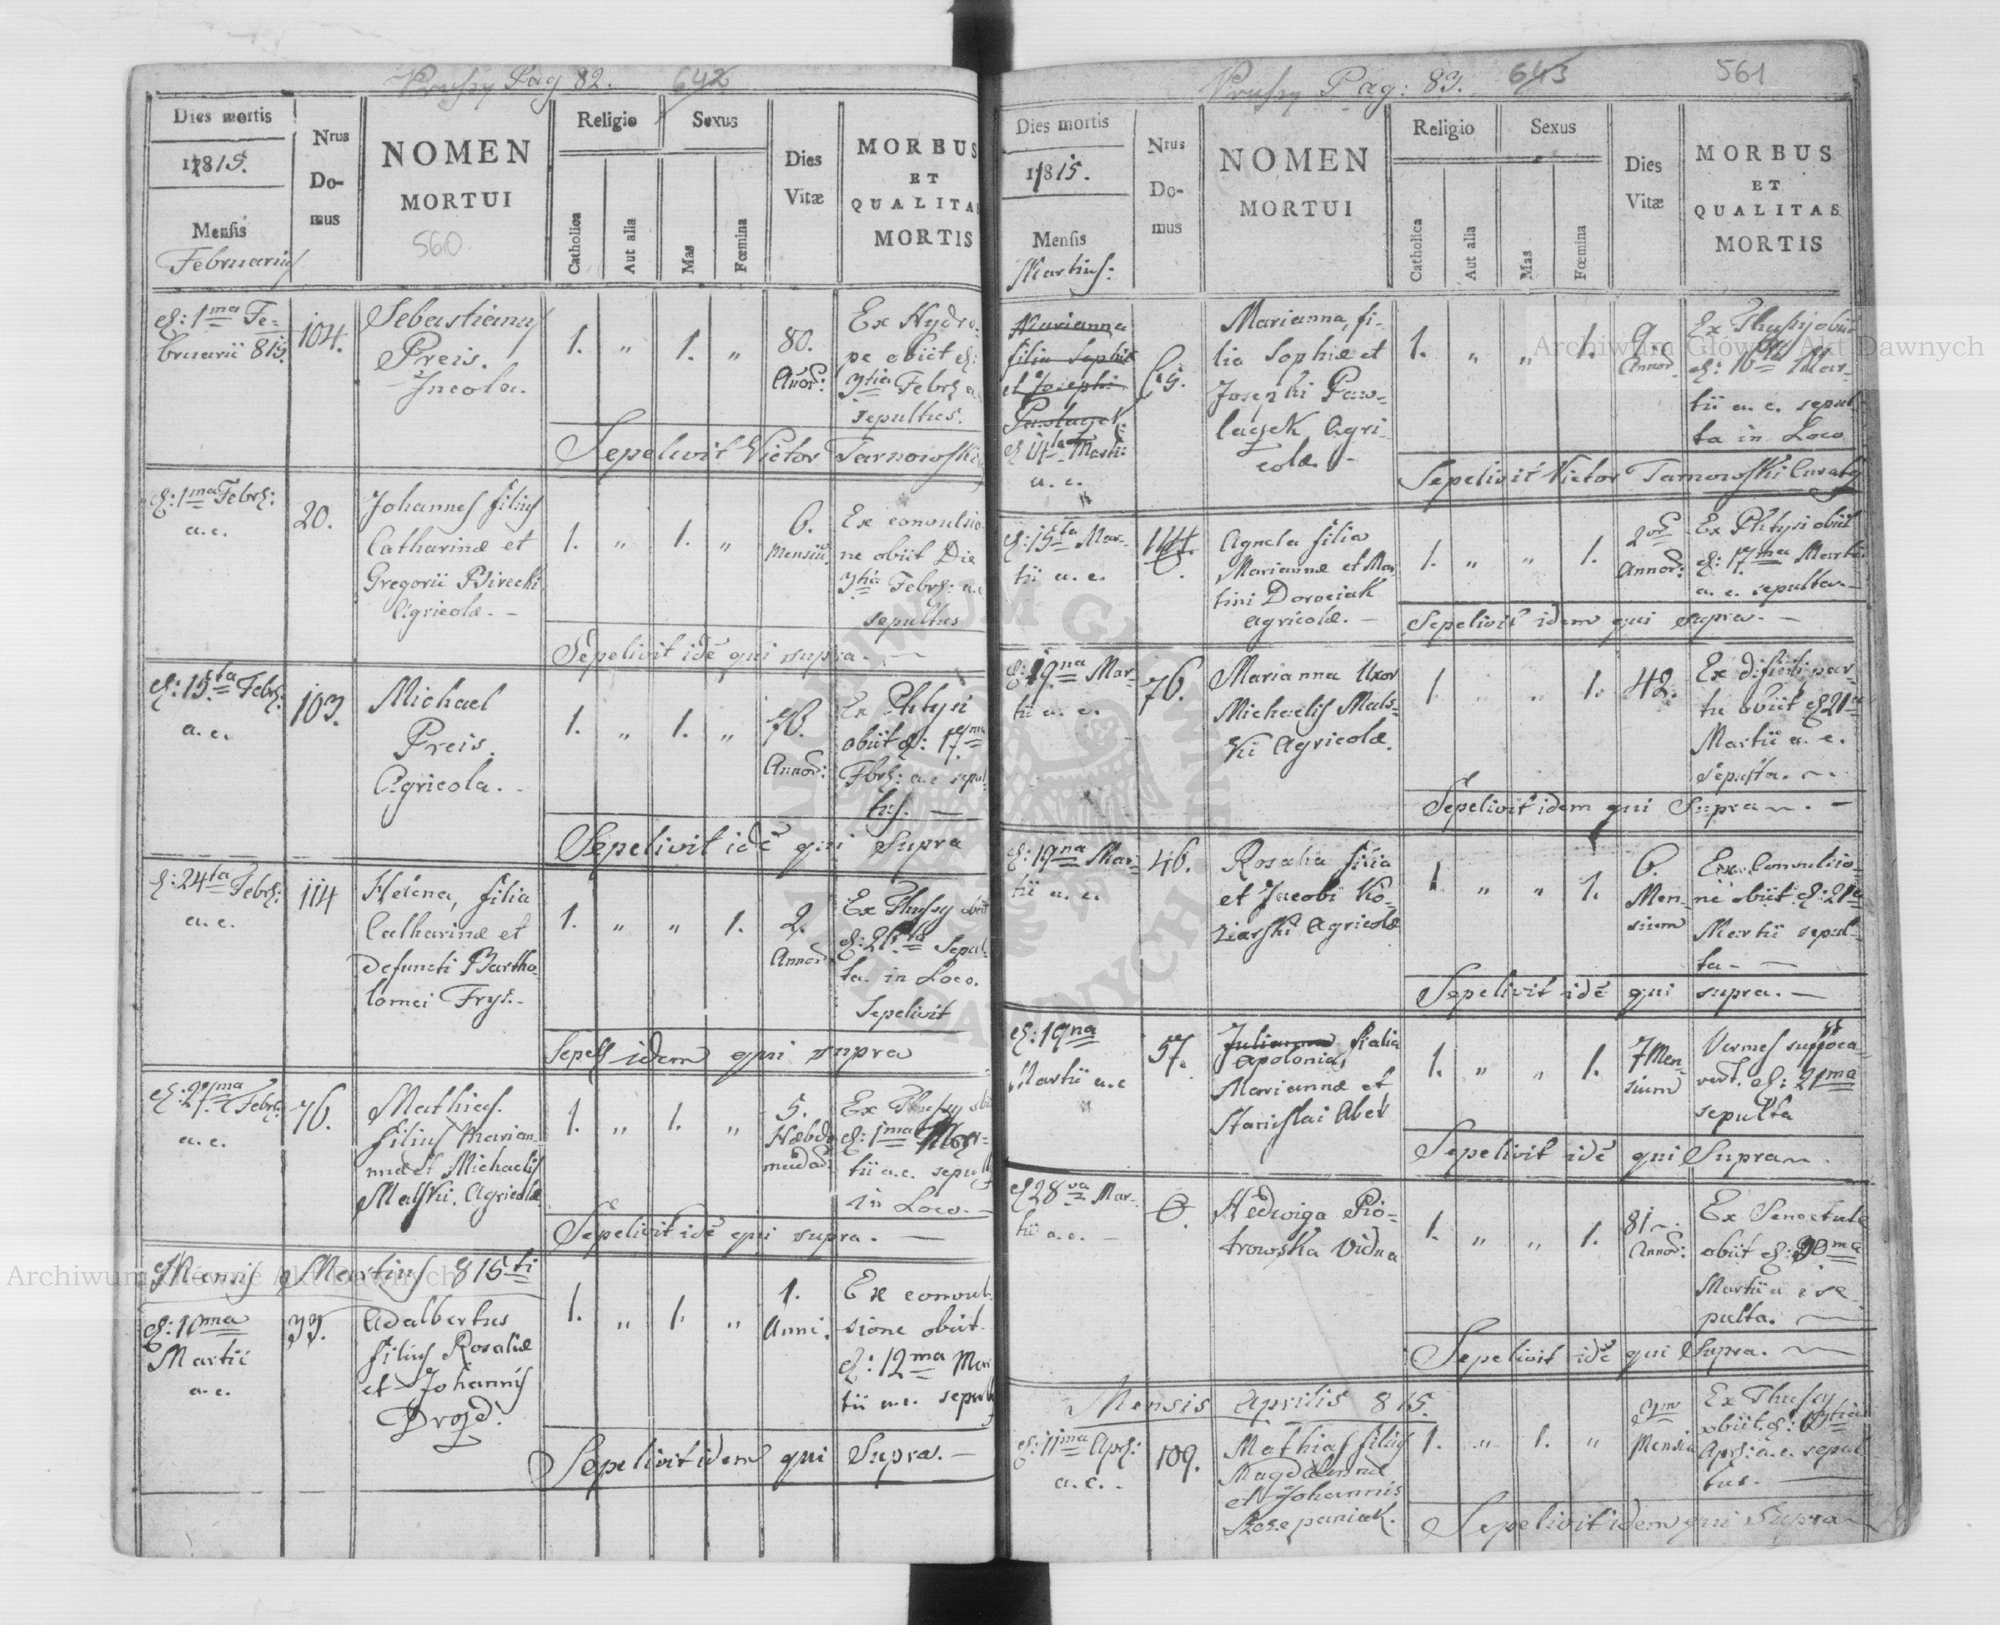 Prussy Pag 82. 642
Dies mortis
1815.
Mensis
Februarius
Nrus
Do-
mus
NOMEN
MORTUI
560
Religio
Catholica
Aut alia
Sexus
Mas
Fœmina
Dies
Vitæ
MORBUS
ET
QUALITA
MORTIS
d: 1ma Fe-
bruarii 815.
104.
Sebastianus
Preis.
Incola.
1. „ 1. „
80.
Ex Hydro-
pe obiit d:
3tia Febr: a.
sepultus.
Sepelivit Victor Tarnowski
d: 1ma Febr:
a.c.
20.
Johannes filius
Catharinæ et
Gregorii
Agricolæ. -
1. „ 1. „
6.
Mensiu
Ex convulsio
ne obiit Die
3tia Febr: a.c
sepultus
Sepelivit idē qui supra. —
d: 15ta Febr:
a.c.
103.
Michael
Preis.
Agricola. -
1. „ 1. „
Annor:
Ex Phtysi
obiit d: 17ma
Fbr: a.c sepul-
tus. —
Sepelivit idē qui Supra
d: 24ta Febr:
a.c.
114
Helena, filia
Catharinæ et
defuncti Bartho-
lomei Frys. -
1. „ „ 1.
2.
Annor
Ex
d: 26ta Sepul-
ta in Loco.
Sepelivit
idem qui supra
d: 27ma Febr:
a.c.
76.
Mathias.
filius Marian-
næ et Michaelis
Malski. Agricolæ
1. „ 1. „
5.
Hebdo
madar
Ex
d: 1ma Mar-
tii a.c. sepult
in Loco. -
Sepelivit idē qui supra. —
Mensis Martius 815ti
d: 10ma
Martii
a.c.
33.
Adalbertus
filius Rosaliæ
et Johannis
Drozd.
1. „ 1. „
1.
Anni.
Ex convul-
sione obiit.
d: 12ma Mar
tii a.c. sepult
Sepelivit idem qui Supra. —
Prussy Pag: 83. 643 561
Dies mortis
1815.
Mensis
Martius:
Nrus
Do-
mus
NOMEN
MORTUI
Religio
Catholica
Aut alia
Sexus
Mas
Fœmina
Dies
Vitæ
MORBUS
ET
QUALITAS
MORTIS
Marianna
filia Sophiæ
et Josephi
Pawlaczek
Marti:
a. c.
Marianna, fi-
lia Sophiæ et
Josephi Paw-
laczek Agri-
colæ. -
1. „ „ 1.
Annor.
Ex obiit
d: Mar-
tii a. c. sepul-
ta in Loco
Sepelivit Victor Tarnowski Curatus
d: 15ta Mar-
tii a. c.
Agnela filia
Mariannæ et Mar
tini Dorociak
Agricolæ. -
1. „ „ 1.
Annor:
Ex Phtysi obiit
d: 17ma Martii
a. c. sepulta. -
Sepelivit idem qui supra. -
d: 19na Mar-
tii a. c.
76.
Marianna Uxor
Michaelis Mals-
ki Agricolæ.
1. „ „ 1.
42.
Ex dificili par-
tu obiit d 21a
Martii a. c.
sepulta. -
Sepelivit idem qui Supra. -
d: 19na Mar-
tii a. c.
46.
Rosalia filia
et Jacobi Ko-
ziarski Agricolæ
1. „ „ 1.
6.
Men-
sium
Ex Convulsio-
ne obiit d: 21a
Martii sepul-
ta - —
Sepelivit idē qui supra. —
d: 19na
Martii a.c
57.
Julianna
Apolonia, filia
Mariannæ et
Stanislai Aber
1. „ „ 1.
7 Men-
sium
Vermes suffoca-
d: 21ma
sepulta
Sepelivit idē qui Supra
d 28va Mar-
tii a.c. -
6.
Hedwiga Pio-
trowska Vidua
1. „ „ 1.
81
Annor:
Ex Senectute
obiit d: 30ma
Martii a c se
pulta. —
Sepelivit idē qui Supra. —
Mensis Aprilis 815.
d: 11ma Apr:
a.c..
109.
Mathias filius
Magdalennæ
et Johannis
Szczepaniak.
1. „ 1. „
Mensiu
Ex
obiit d: 13tia
Apr: a.c. sepul
tus. —
Sepelivit idem qui Supra
Archiwum Główne Akt Dawnych
Archiwum Główne Akt Dawnych
ARCHIWUM GŁÓWNE AKT DAWNYCH